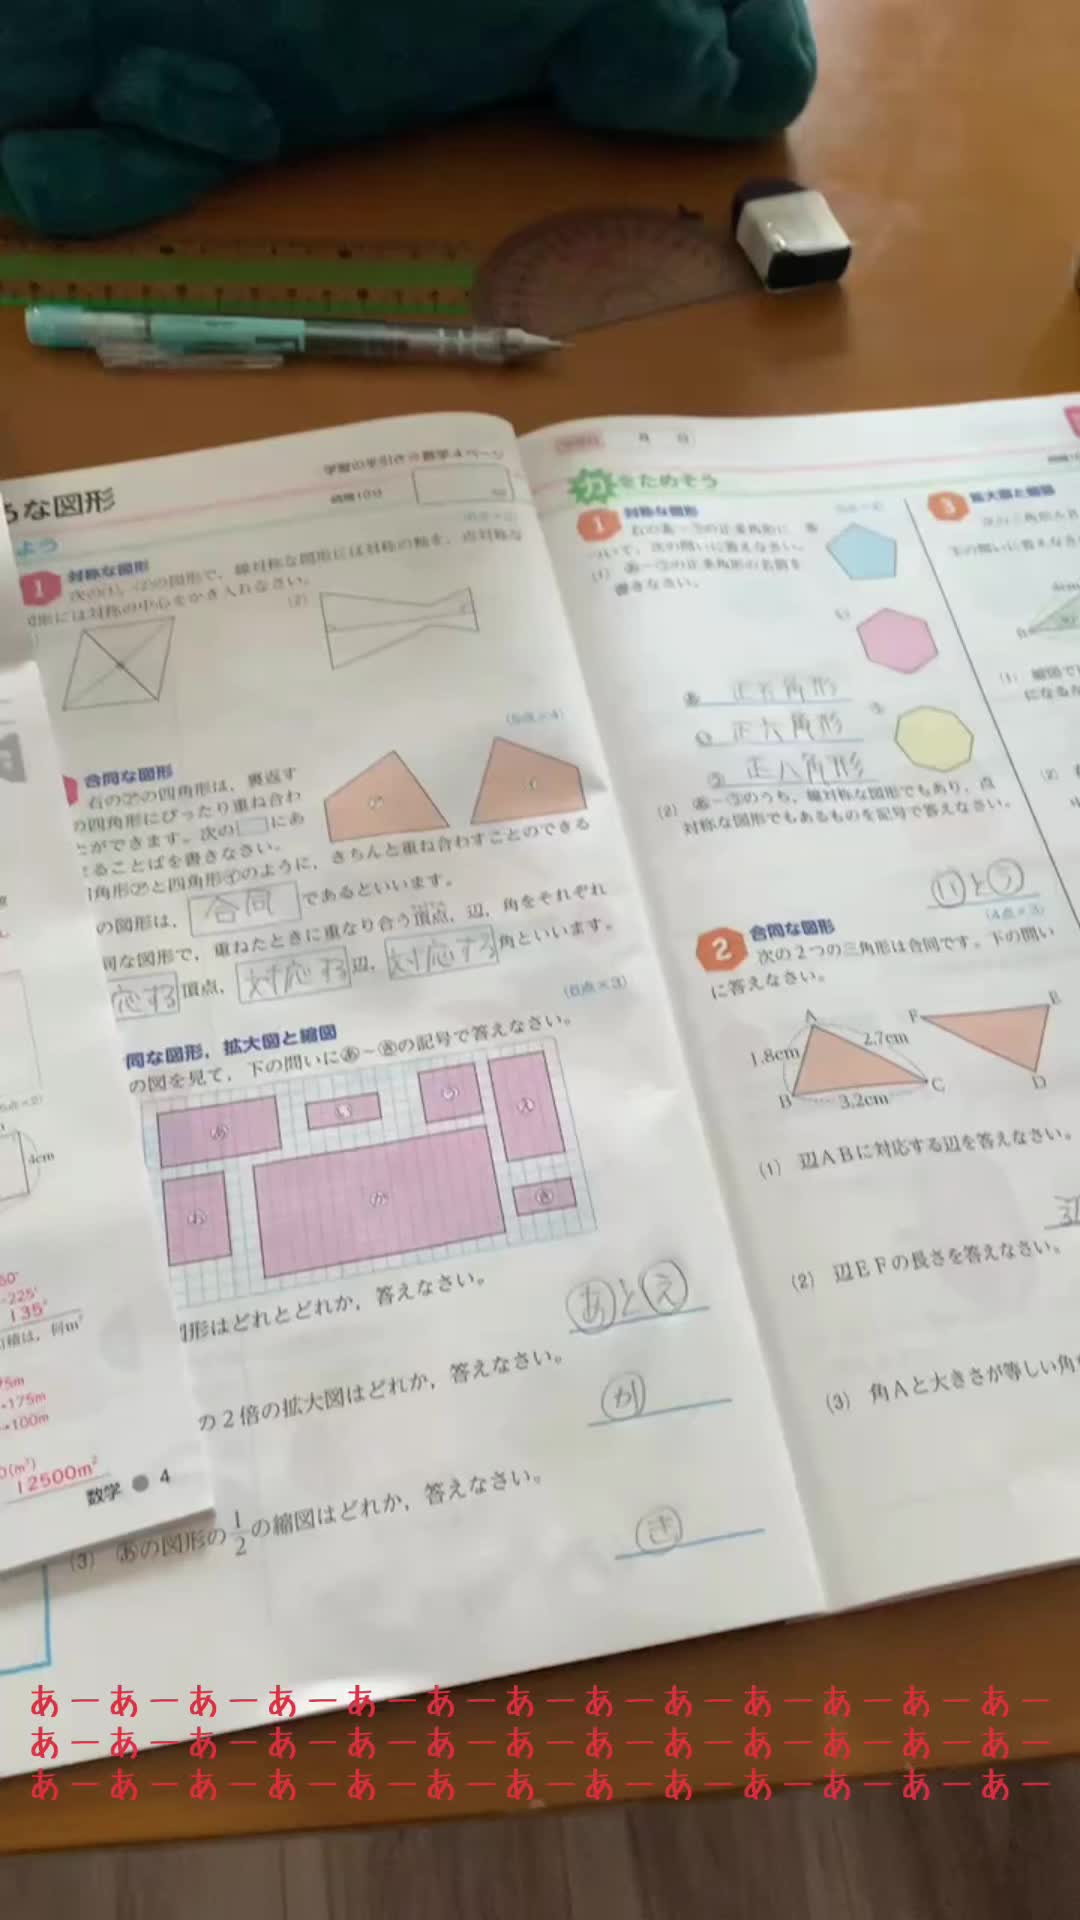 ろな図形
よう
学習の手引き→数学4ページ
時間10分
1 対称な図形
次の(1),(2)の図形で,線対称な図形には対称の軸を,点対称な
図形には対称の中心をかき入れなさい。
(2)
(5点×4)
合同な図形
右の㋐の四角形は,裏返す
の四角形にぴったり重ね合わ
とができます。次の□にあ
ることばを書きなさい。
角形㋐と四角形㋑のように,きちんと重ね合わすことのできる
の図形は,合同であるといいます。
同な図形で,重ねたときに重なり合う頂点,辺,角をそれぞれ
応する頂点,対応する辺,対応する角といいます。
(6点×3)
同な図形,拡大図と縮図
の図を見て,下の問いにあ〜きの記号で答えなさい。
あ
う
え
お
か
き
図形はどれとどれか,答えなさい。
あとえ
の2倍の拡大図はどれか,答えなさい。
か
(3) あの図形の1/2の縮図はどれか,答えなさい。
き
4cm
-225°
135°
積は,何m²
75m
→175m
→100m
12500m²
数学 ● 4
月 日
力をためそう
1 対称な図形
右のあ〜うの正多角形に
ついて,次の問いに答えなさい。
(1) あ〜うの正多角形の名前を
書きなさい。
あ 正五角形
い 正六角形
う 正八角形
(2) あ〜うのうち,線対称な図形でもあり,点
対称な図形でもあるものを記号で答えなさい。
いとう
(4点×3)
2 合同な図形
次の2つの三角形は合同です。下の問い
に答えなさい。
A
F
E
1.8cm
2.7cm
B
3.2cm
C
D
(1) 辺ABに対応する辺を答えなさい。
辺
(2) 辺EFの長さを答えなさい。
(3) 角Aと大きさが等しい角
3 拡大図と縮図
下の問いに答えなさ
4cm
B
(1) 縮図で
になるか
(2)
あーあーあーあーあーあーあーあーあーあーあーあーあー
あーあーあーあーあーあーあーあーあーあーあーあーあー
あーあーあーあーあーあーあーあーあーあーあーあーあー